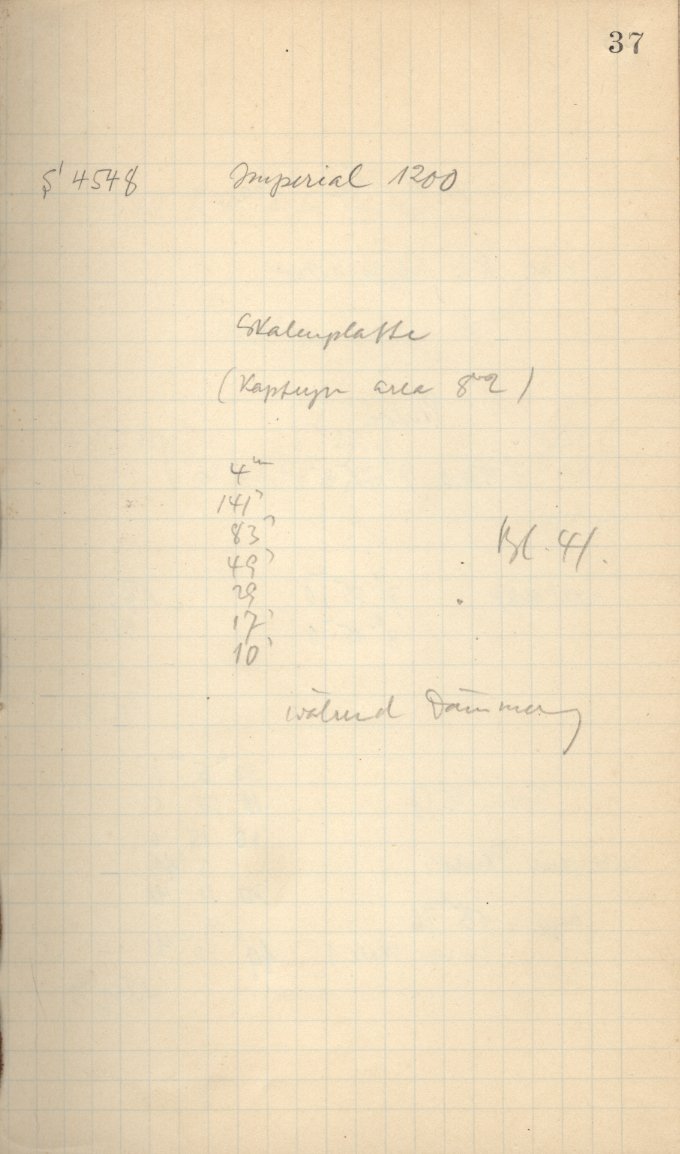 37
S' 4548 Imperial 1200
Skalenplatte
(Kapteyn area 8
4ᵐ
141ˢ
83ˢ
49ˢ
29
17ˢ
10ˢ
Bl. 41.
während Dämmerg